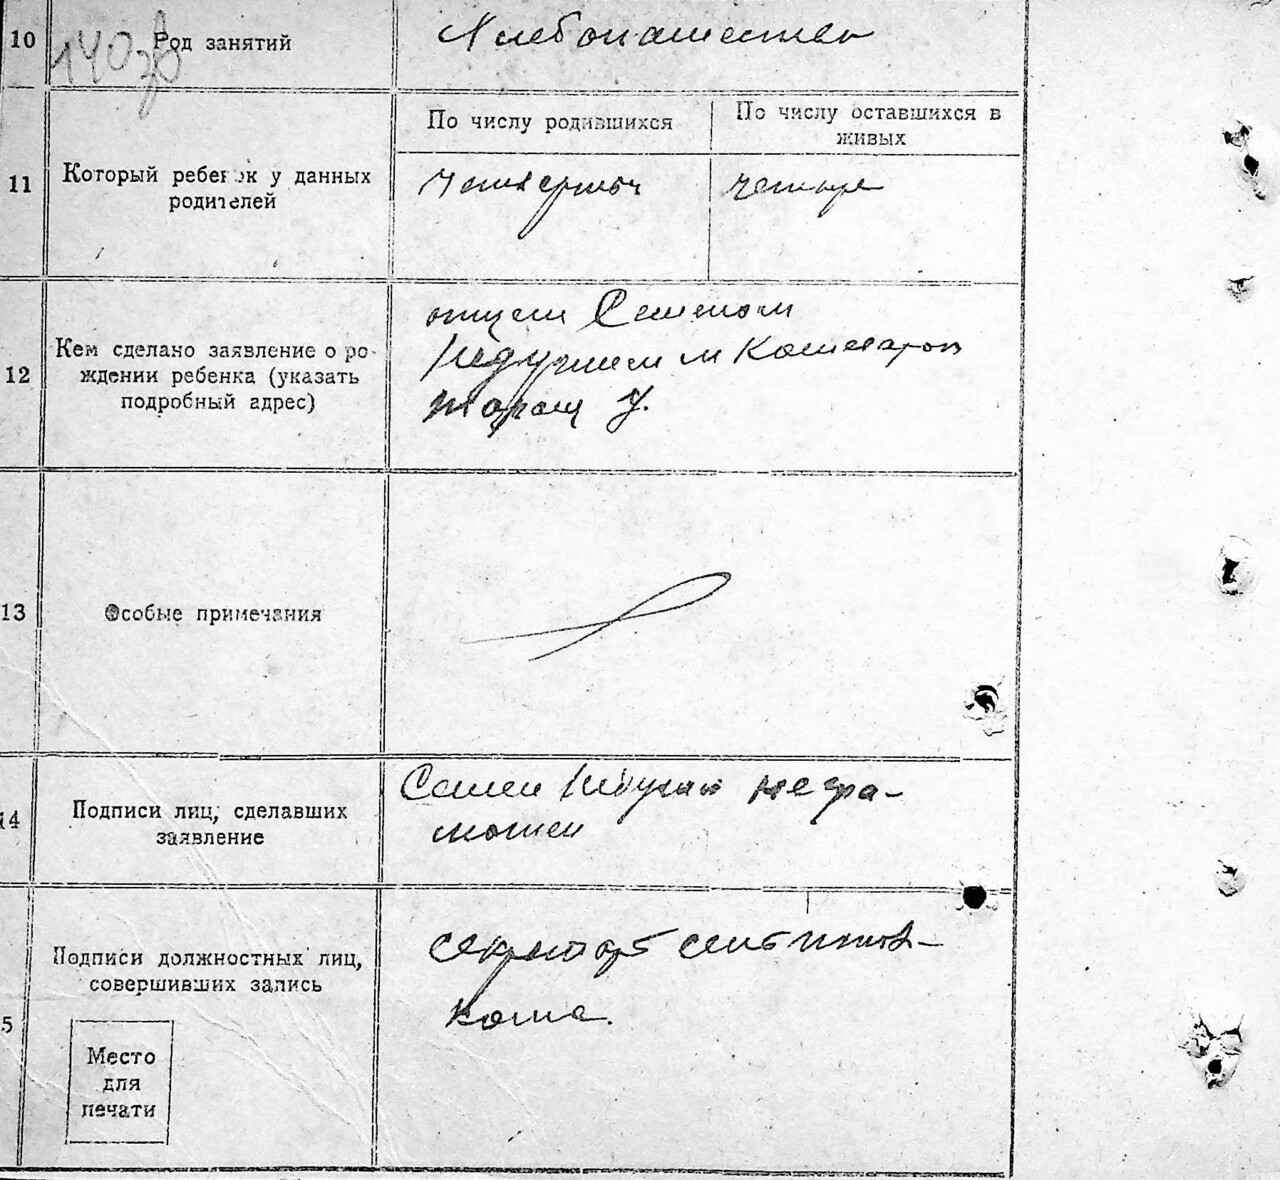 10
Род занятий
Хлебопашество
11
Который ребенок у данных
родителей
По числу родившихся
По числу оставшихся в
живых
четвертый
четыре
12
Кем сделано заявление о ро-
ждении ребенка (указать
подробный адрес)
отцем Семеном
м
У.
13
Особые примечания
14
Подписи лиц, сделавших
заявление
Семен негра-
мотен
5
Подписи должностных лиц,
совершивших запись
секретарь
Место
для
печати